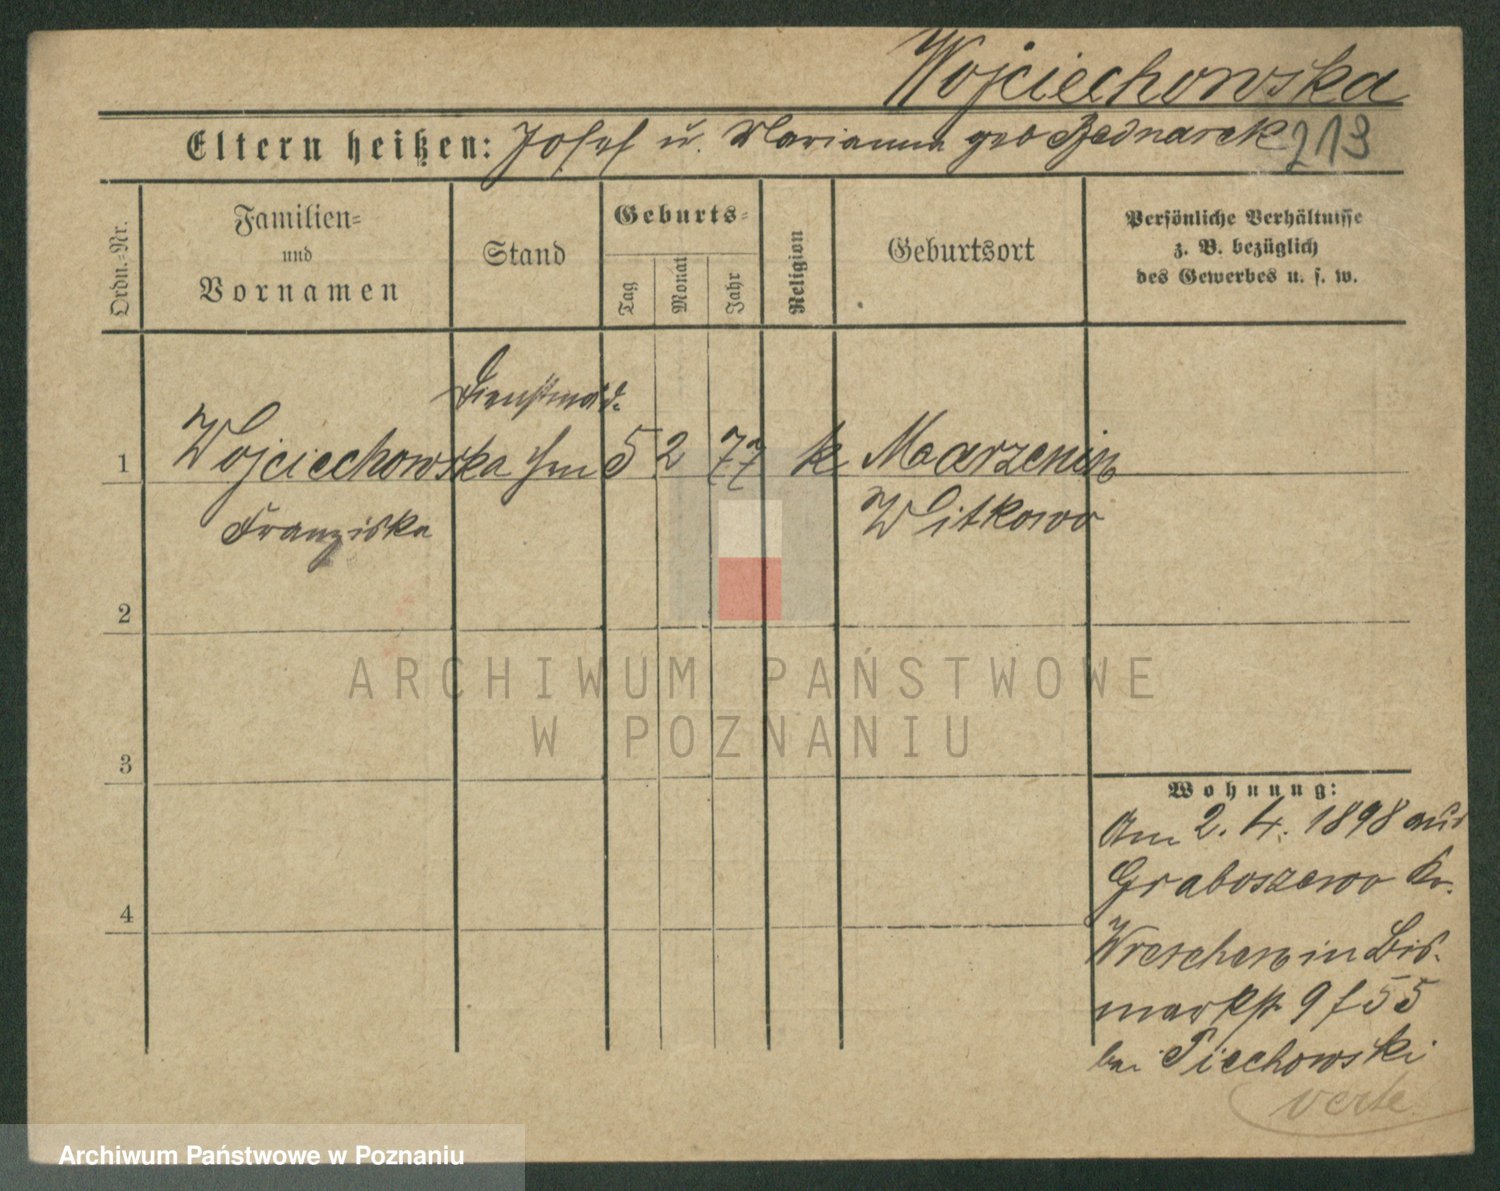 Wojciechowska
Eltern heißen: Josef u. Marianna geb Bednarek 213
Ordn.=Nr.
Familien=
und
Vornamen
Stand
Geburts=
Tag
Monat
Jahr
Religion
Geburtsort
Persönliche Verhältnisse
z. B. bezüglich
des Gewerbes u. s. w.
Dienstmäd.
1 Wojciechowska 5 2 77 k Marzenin
Franziska Witkowo
2
3
4
Wohnung:
Am 2. 4. 1898 aus
Graboszewo Kr.
Wreschen in Bis-
markstr 9 f 55
bei Piechowski
verte
ARCHIWUM PAŃSTWOWE
W POZNANIU
Archiwum Państwowe w Poznaniu